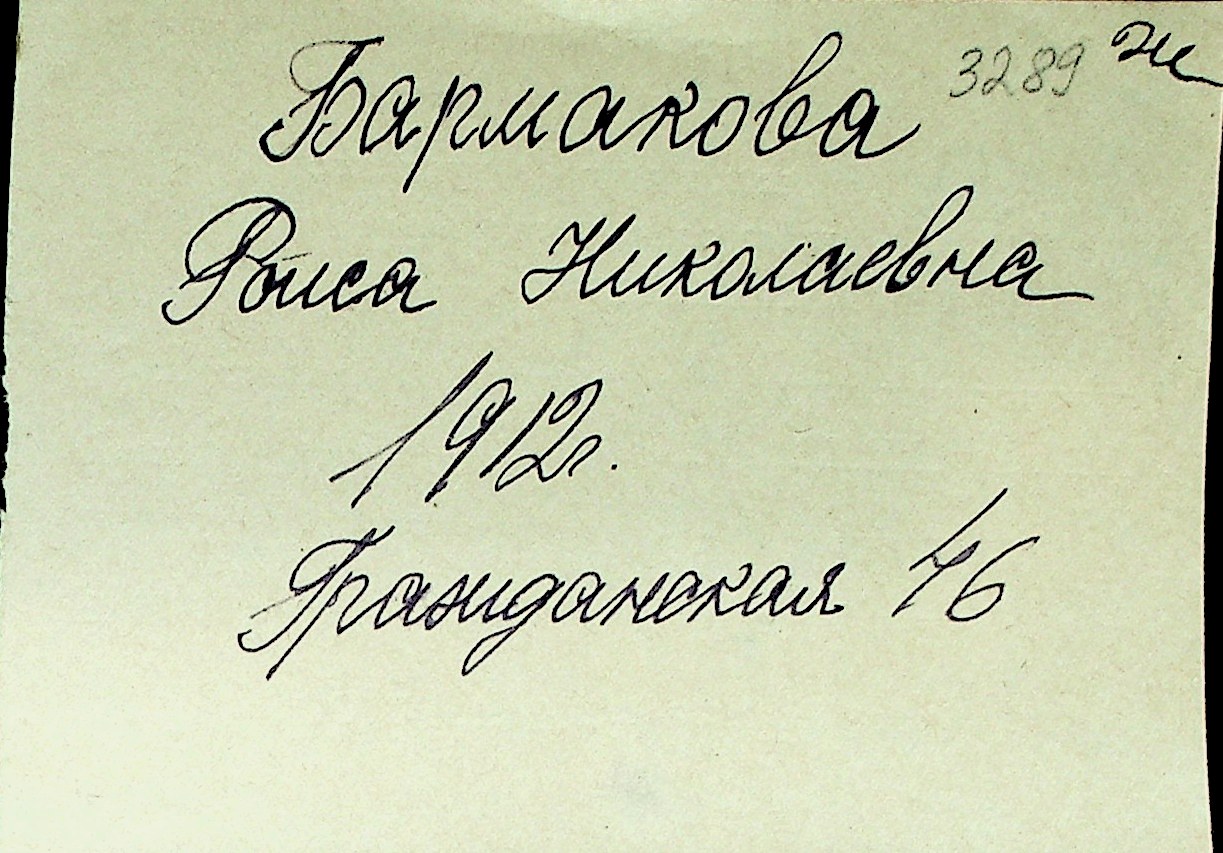 Бармакова 3289 ж
Раиса Николаевна
1912г.
Гражданская 46